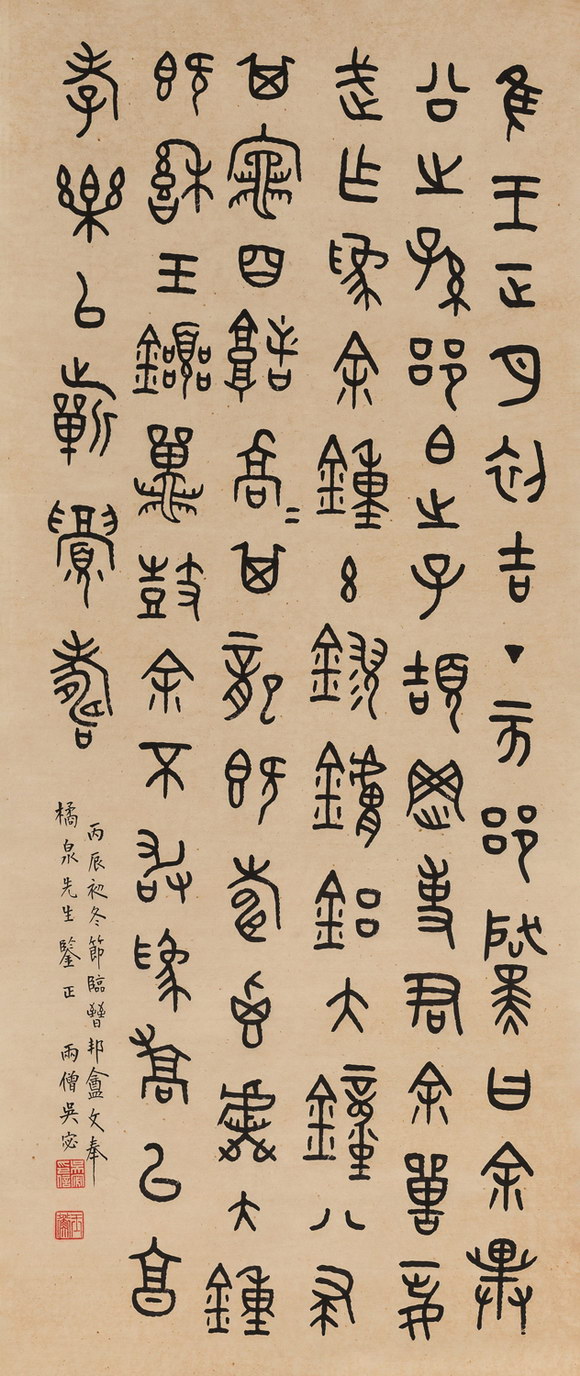 隹王正月初吉丁亥郘黛曰余畢
公之孫郘白之子余頡岡事君余嘼
武乍為余鐘玄鏐鏞鋁大鐘八聿
其竈四堵喬=其龍既壽鬯虡大鐘
既縣玉鼉鼓余不敢為喬以享
孝樂以祈眉壽
丙辰初冬節臨晉邦盦文奉
橘泉先生鑒正 雨僧吳宓